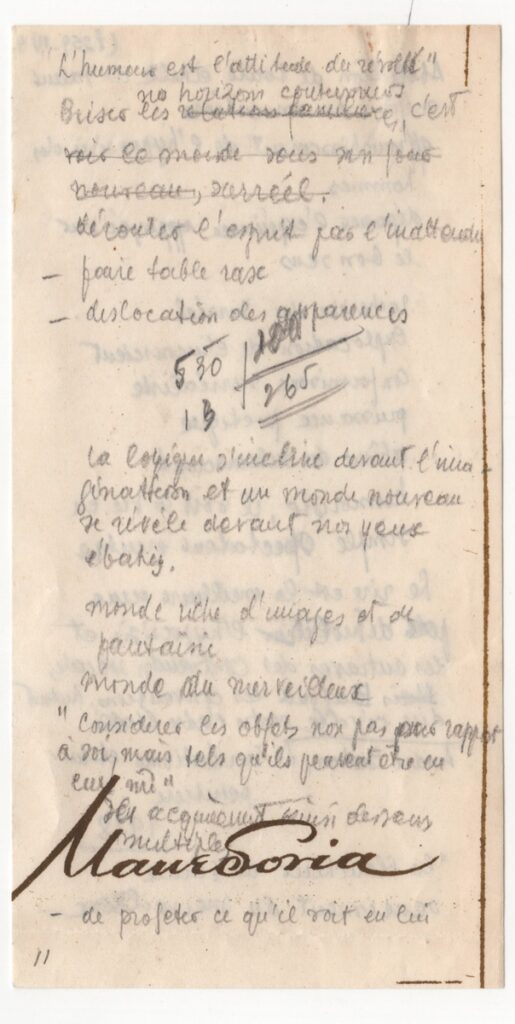 "L'humour est l'attitude du révolté"
nos horizons coutumiers
Briser les relations familières, c'est
voir le monde sous un jour
nouveau, surréel.
dérouter l'esprit par l'inattendu
- faire table rase
- dislocation des apparences
530
265
13
la logique s'incline devant l'ima-
gination et un monde nouveau
se révèle devant nos yeux
ébahis.
monde riche d'images et de
fantaisie
monde du merveilleux
"Considérer les objets non pas par rapport
à soi, mais tels qu'ils peuvent être en
eux"
acquièrent ainsi des sens
multiples
- de projeter ce qu'il voit en lui
11